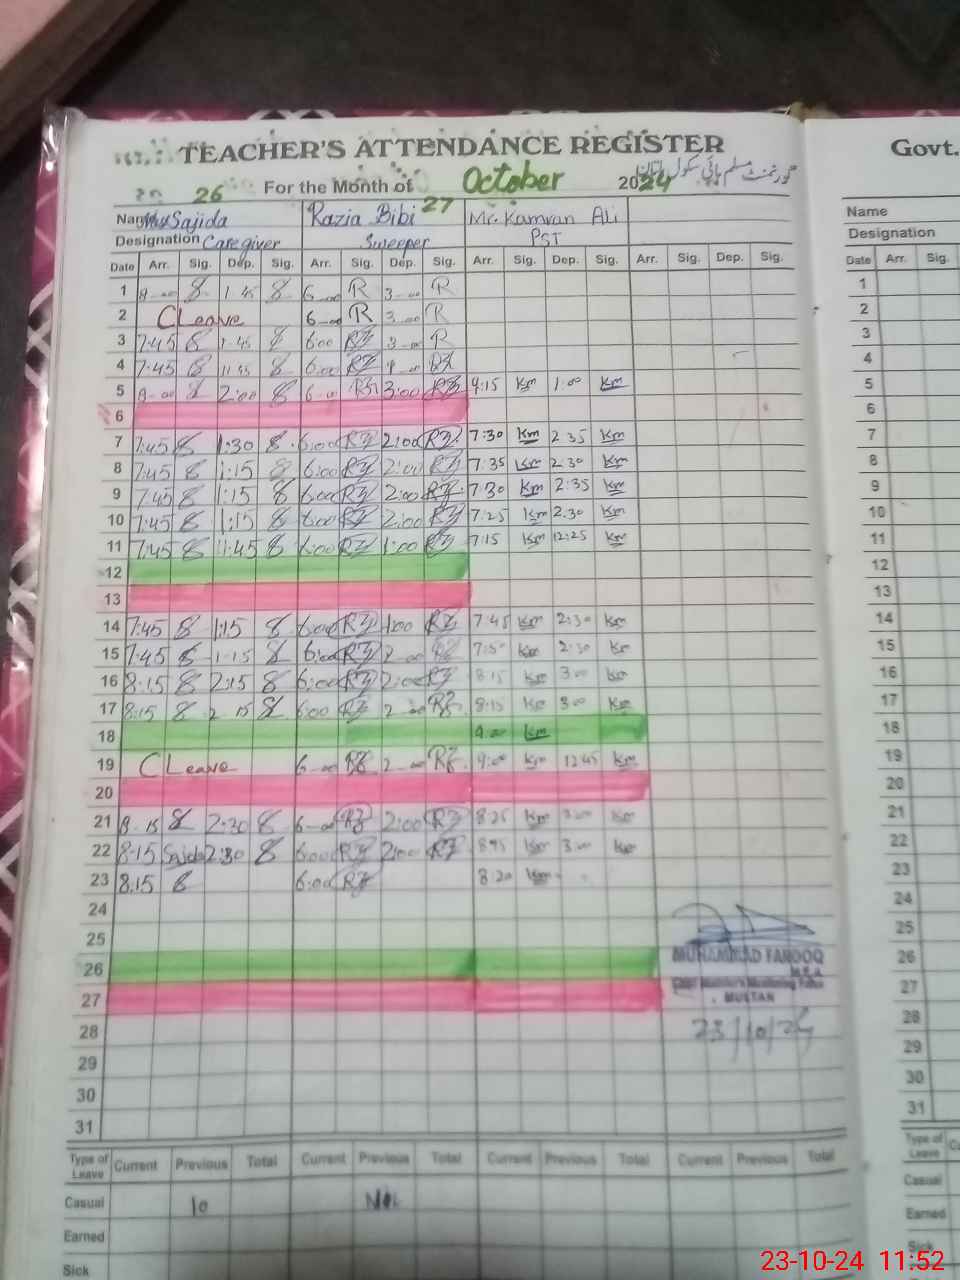 TEACHER'S ATTENDANCE REGISTER Govt.
26 For the Month of October 2024 گورنمنٹ مسلم ہائی سکول ملتان
27
Name Sajida Razia Bibi Mr. Kamran Ali Name
Designation Caregiver Sweeper PST Designation
Date Arr. Sig. Dep. Sig. Arr. Sig. Dep. Sig. Arr. Sig. Dep. Sig. Arr. Sig. Dep. Sig. Date Arr. Sig.
1 8-00 8 1-45 8 6-00 R 3-00 R 1
2 C Leave 6-00 R 3-00 R 2
3 7:45 8 1-45 8 6:00 RZ 3-00 R 3
4 7:45 8 8 6:00 RZ RZ 4
5 8-00 8 2:00 8 6-00 3:00 RZ 9:15 Km 1:00 Km 5
6 6
7 7:45 8 1:30 8 6:00 RZ 2:00 RZ 7:30 Km 2 35 Km 7
8 7:45 8 1:15 8 6:00 RZ 2:00 RZ 7:35 Km 2:30 Km 8
9 7:45 8 1:15 8 6:00 RZ 2:00 RZ 7:30 Km 2:35 Km 9
10 7:45 8 1:15 8 6:00 RZ 2:00 RZ 7:25 Km 2:30 Km 10
11 7:45 8 11:45 8 6:00 RZ 1:00 RZ 7:15 Km 12:25 Km 11
12 12
13 13
14 7:45 8 1:15 8 6:00 RZ 1:00 RZ 7:45 Km 2:30 Km 14
15 7:45 8 1-15 8 6:00 RZ 2-00 RZ 7:50 Km 2:30 Km 15
16 8:15 8 2:15 8 6:00 RZ 2:00 RZ 8:15 Km 3:00 Km 16
17 8:15 8 2 15 8 6:00 RZ 2-00 RZ 8:15 Km 3:00 Km 17
18 9:00 Km 18
19 C Leave 6-00 RZ 2-00 RZ 9:00 Km 12 45 Km 19
20 20
21 8-15 8 2:30 8 6-00 RZ 2:00 RZ 8:25 Km 3:00 Km 21
22 8-15 Sajida 2:30 8 6:00 RZ 2:00 RZ Km 3:00 Km 22
23 8.15 8 6:00 RZ 8:20 Km 23
24 24
25 25
26 MUHAMMAD FAROOQ 26
M.E.A
27 Chief Minister's Monitoring Force 27
MULTAN
28 23/10/24 28
29 29
30 30
31 31
Type of Leave Current Previous Total Current Previous Total Current Previous Total Current Previous Total Type of Leave
Casual 10 Nil Casual
Earned Earned
Sick Sick
23-10-24 11:52